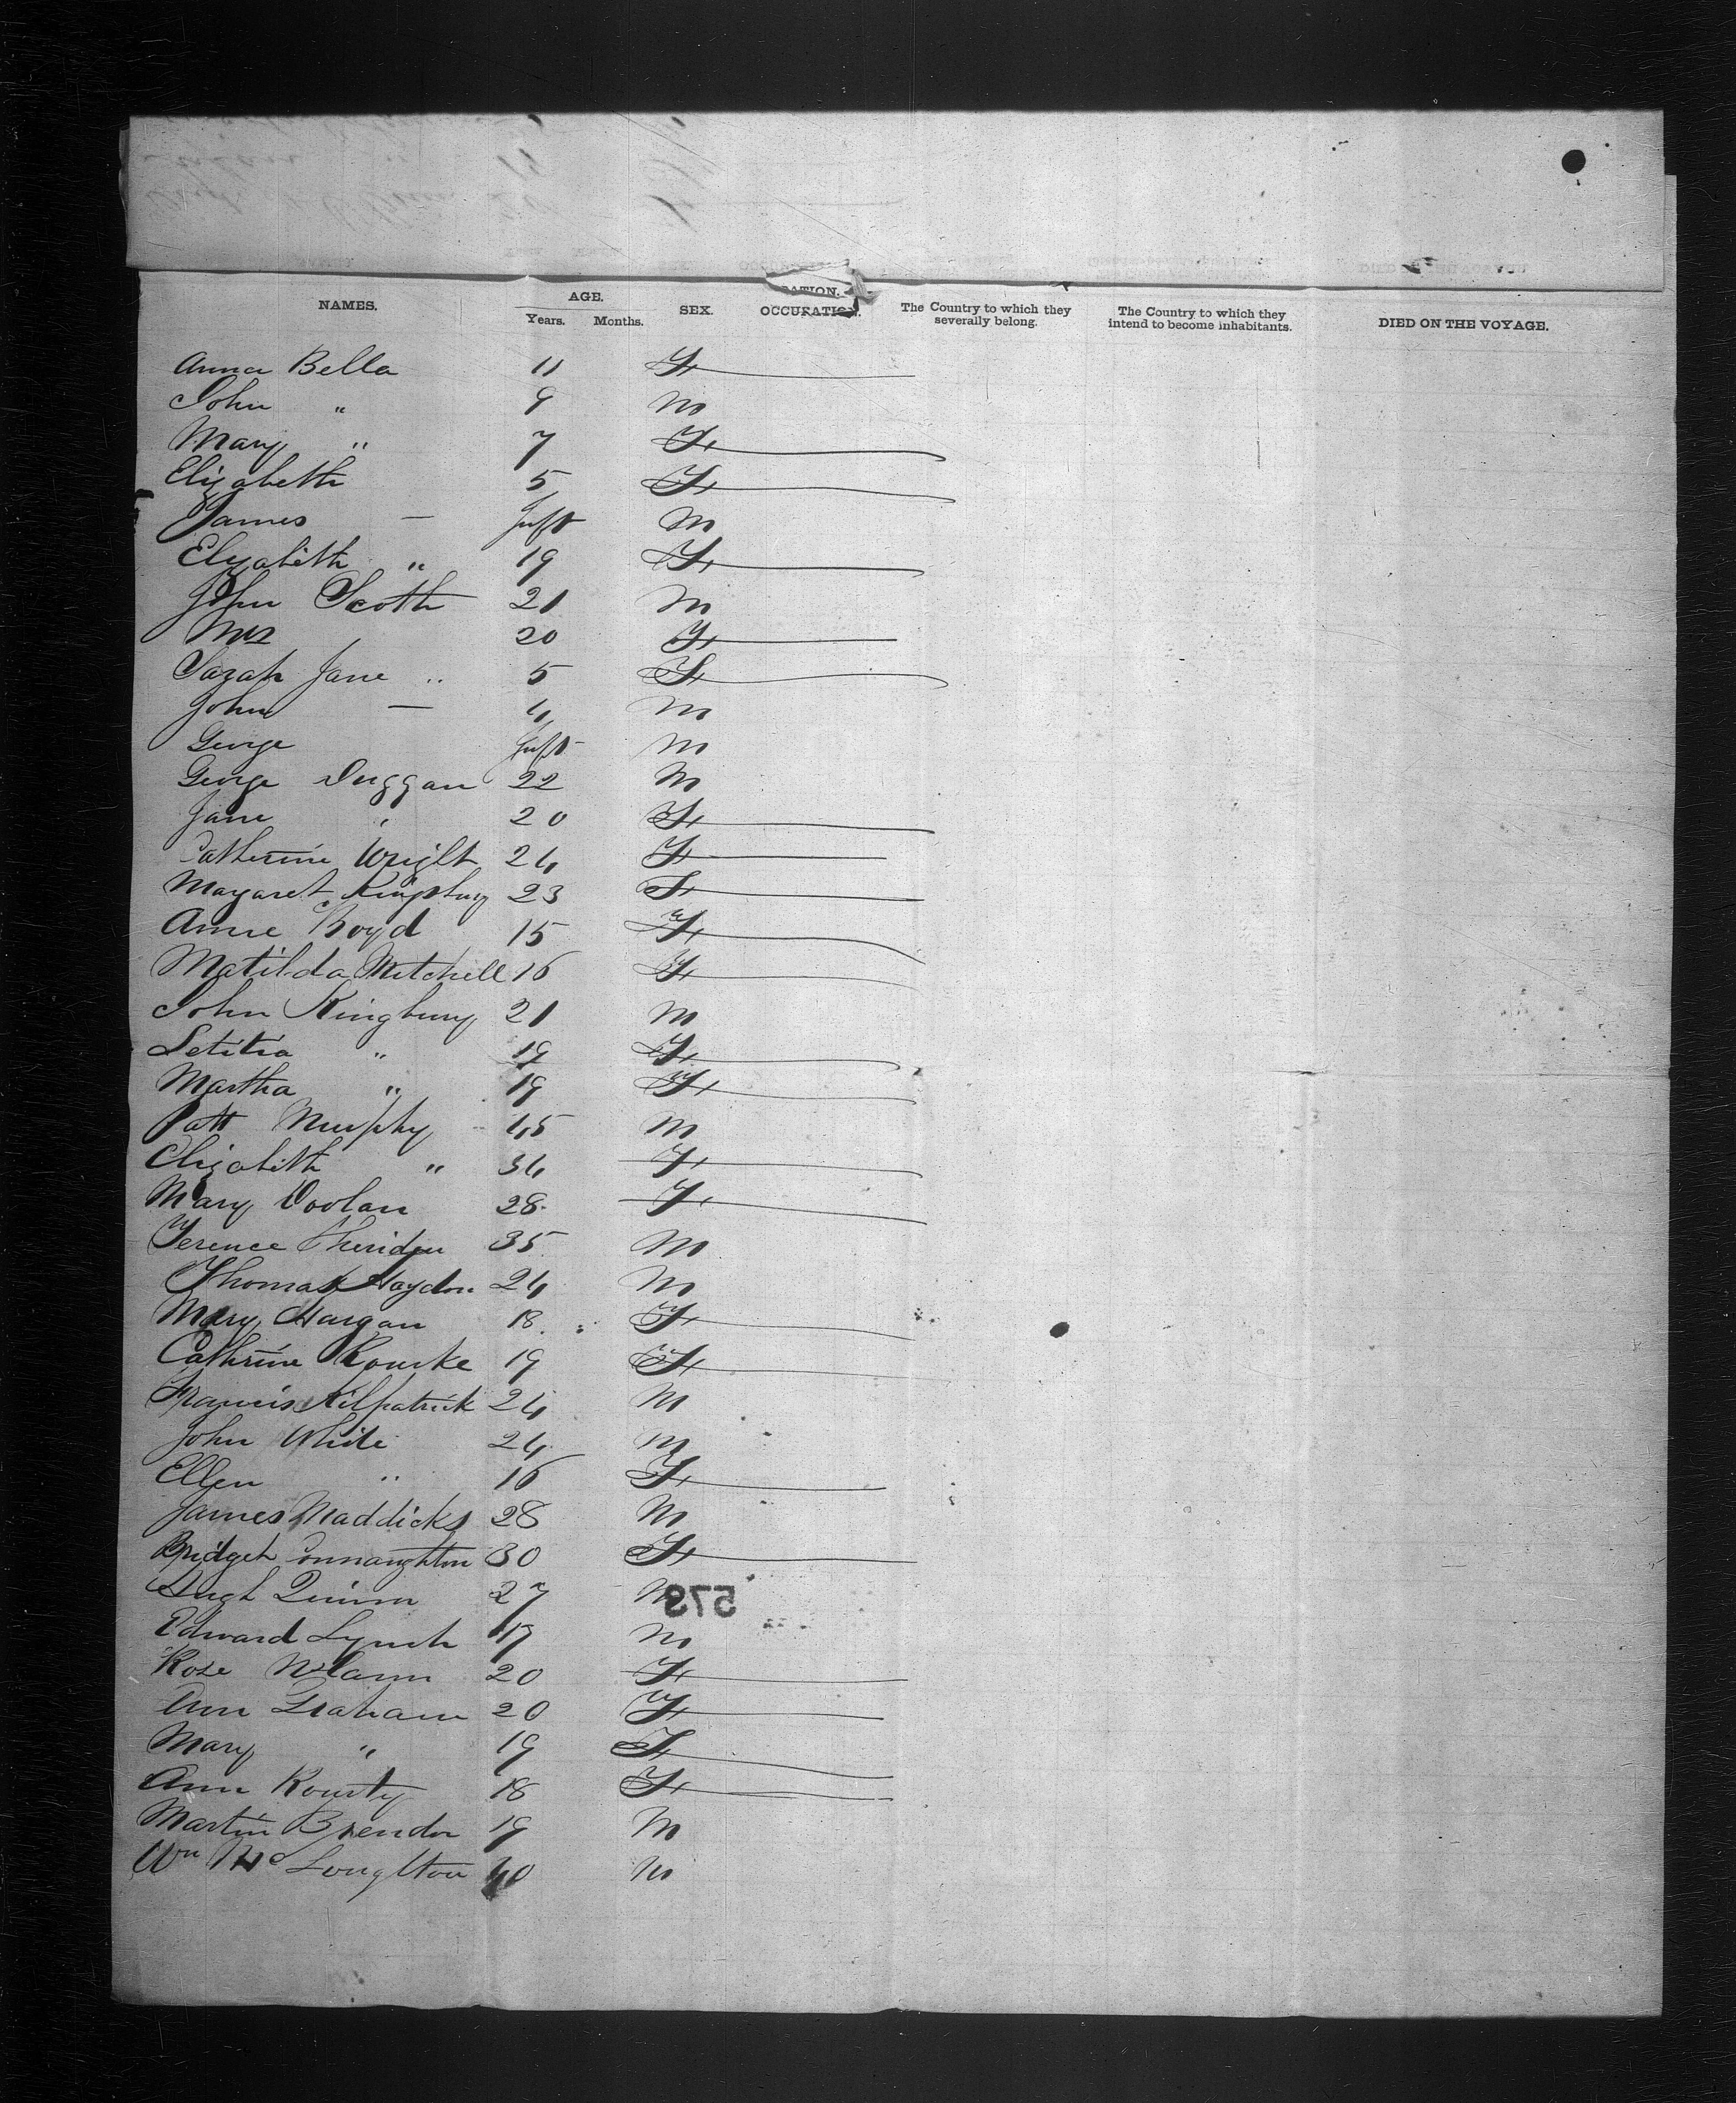 NAMES. AGE. SEX. OCCUPATION. The Country to which they severally belong. The Country to which they intend to become inhabitants. DIED ON THE VOYAGE.
Years. Months.
Anna Bella 11 F
John " 9 M
Mary " 7 F
Elizabeth 5 F
James — Inft M
Elizabeth " 19 F
John Scott 21 M
Mrs 20 F
Sarah Jane " 5 F
John — 4 M
George Inft M
George Duggan 22 M
Jane " 20 F
Catherine Wright 24 F
Margaret Kingsbury 23 F
Annie Boyd 15 F
Matilda Mitchell 16 F
John Kingbury 21 M
Letitia " 19 F
Martha " 19 F
Patt Murphy 45 M
Elizabeth " 34 F
Mary Doolan 28 F
Terence Sheridan 35 M
Thomas Haydon 24 M
Mary Hargan 18 F
Cathrine Rourke 19 F
Francis Kilpatrick 24 M
John White 24 M
Ellen " 16 F
James Maddicks 28 M
Bridget Connaughton 30 F
Hugh Quinn 27 M
579
Edward Lynch 17 M
Rose 20 F
Ann Graham 20 F
Mary " 19 F
Ann 18 F
Martin 19 M
Wm Mc 40 M